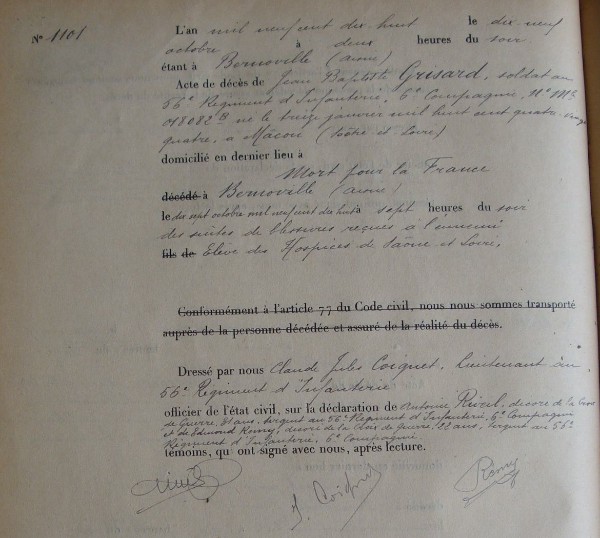 N° 1101
L'an mil neuf cent dix huit le dix neuf
octobre à deux heures du soir
étant à Bernoville (Aisne)
Acte de décès de Jean Baptiste Grisard, soldat au
56e Régiment d'Infanterie, 6e Compagnie, N° Mle
018082B né le treize janvier mil huit cent quatre vingt
quatre, à Mâcon (Saône et Loire)
domicilié en dernier lieu à
Mort pour la France
décédé à Bernoville (Aisne)
le dix sept octobre mil neuf cent dix huit à sept heures du soir
des suites de blessures reçues à l'ennemi
fils de Elève des Hospices de Saône et Loire,
Conformément à l'article 77 du Code civil, nous nous sommes transporté
auprès de la personne décédée et assuré de la réalité du décès.
Dressé par nous Claude Jules Coignet, Lieutenant au
56e Régiment d'Infanterie
officier de l'état civil, sur la déclaration de Antoine décoré de la Croix
de Guerre, ans, sergent au 56e Régiment d'Infanterie, 6e Compagnie
et de Edmond Rémy, décoré de la Croix de Guerre, 22 ans, sergent au 56e
Régiment d'Infanterie, 6e Compagnie.
témoins, qui ont signé avec nous, après lecture.
J. Coignet Rémy